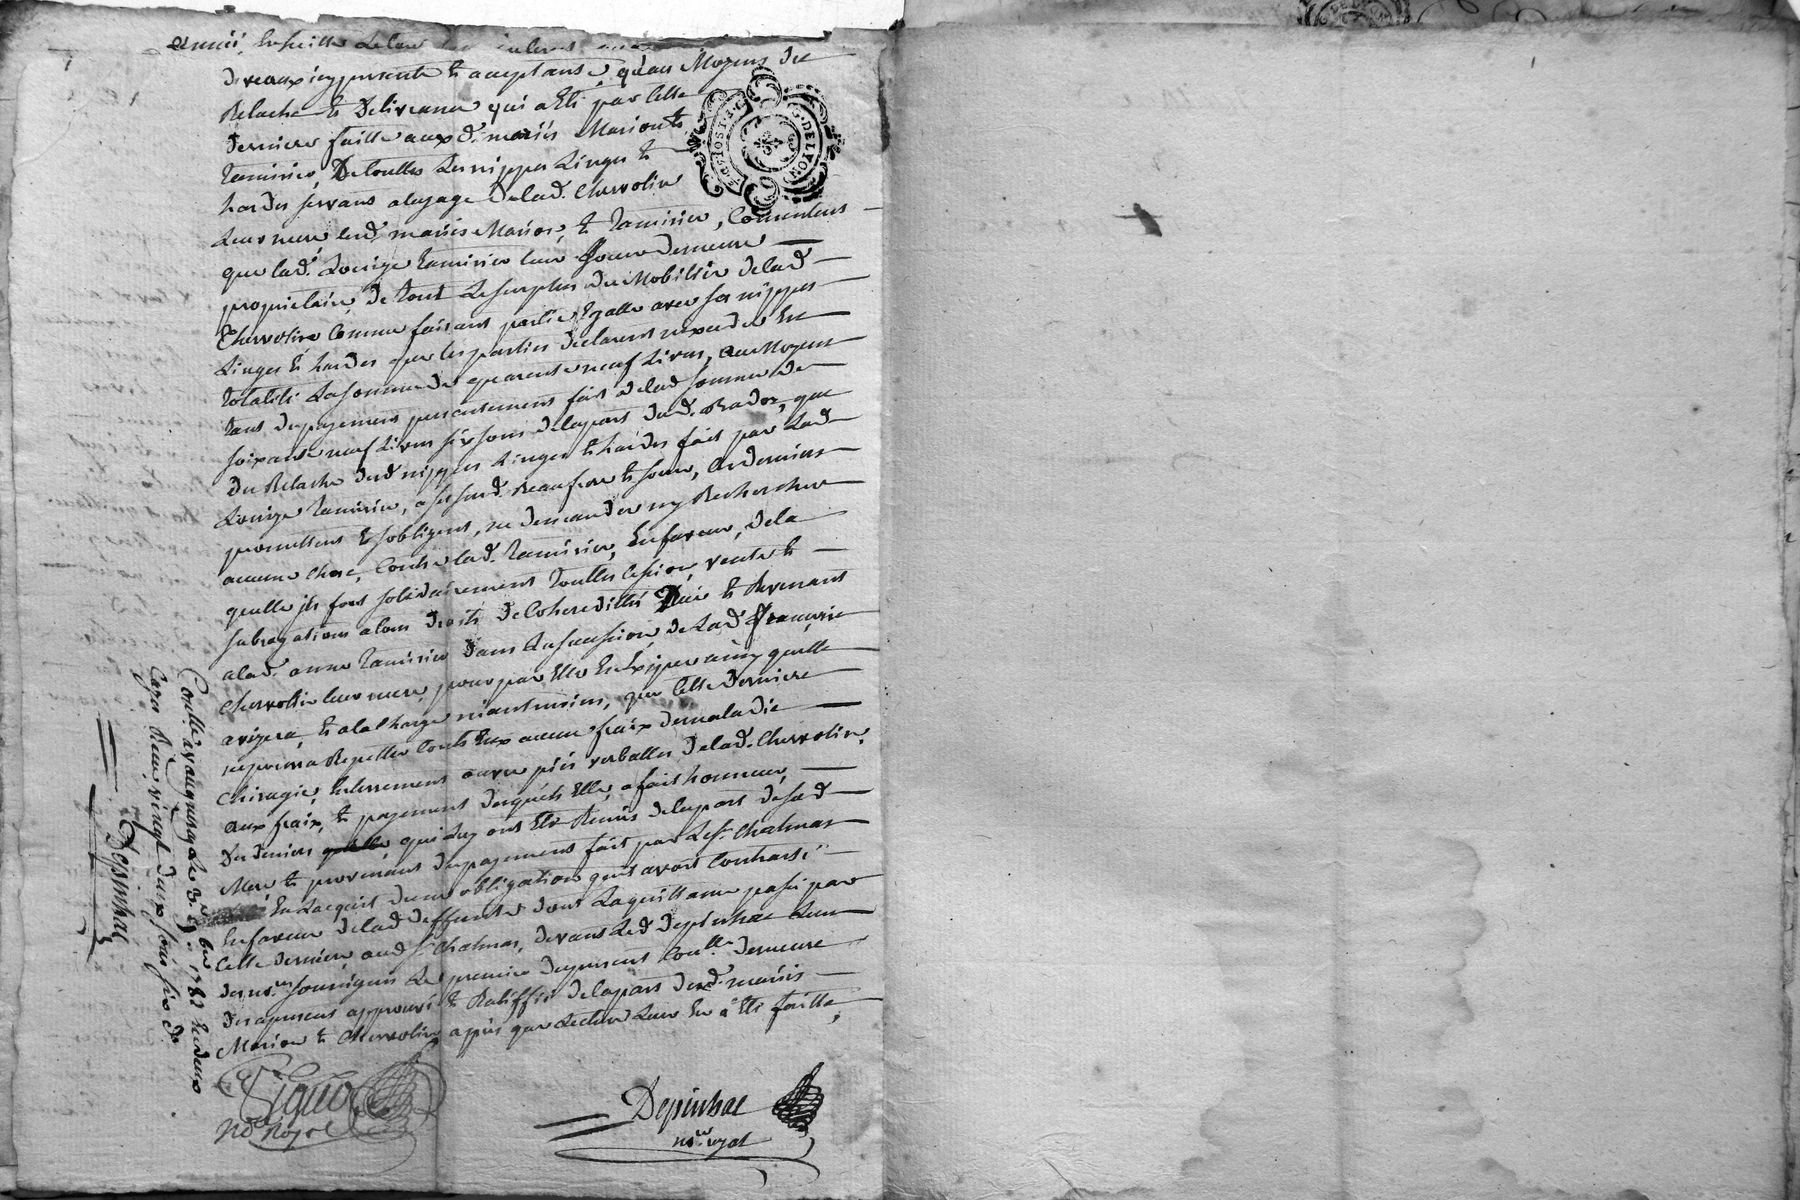 annéé, Ensuitte de leur
Devaux icypresente & aceptante, qu'au Moyens du
Relache & Delivrance qui a Eté par Cette
Derniere faitte aux d. mariés Marion &
Tamisier, De touttes Les nippes Linges &
hardes servans alusage Delad. Chervolin
Leur mere lesd. mariés Marion, & Tamisier, Consentent
que lad. Louise Tamisier leur Soeur demeure
proprietaire de tout Le surplus du Mobilier delad.
Chervolin Comme faisant partie Egalle avec ses nippes
Linges & hardes que les parties declarent nexceder En
totalité La somme de quarente neuf Livres, au Moyen
tant du payement presentement fait delad. somme de
soixante neuf Livres six sous delapart dud. Nador, que
du Relache desd. nippes Linges & hardes fait par Lad.
Louise Tamisier, a sesd. Beaufrere & soeur, Ces derniers
promettent & sobligent, ne demander ny Rechercher
aucune Chose, Contre lad. Tamisier, En faveur, de la
quelle ils font solidairement touttes Cession, vente &
subrogations aleurs droits de Coheredittés
alad. anne Tamisier dans La succession, de Lad. Françoise
Chervolin leur mere, pour par Elle En Exiger ainsy quelle
avizera, & ala Charge neantmoins, que Cette Derniere
ne pourra Repetter Contr'Eux aucuns fraix de maladie
Chirugie, Enterrement ouvre près verballes delad. Chervolin,
aux fraix, & payement desquels Elle a fait honneur,
des deniers qui Luy ont Eté Remis delapart desad.
Mere & provenants du payement fait par Le Sr. Chalmas
En Lacquit dune obligation quil avoit Contracté
En faveur delad. deffunte dont La quittance passée par
Cette derniere, aud. Sr. Chalmas, devant Led. Depinhac Lun
des nores. soussignés Le premier du present Conlle. Demeure
des apresent approuvé & Ratiffié de lapart desd. mariés
Marion & Chervolin après que Lecture Leur En a Eté faitte,
Depinhac
nore. royal
nore. Royal
Conllé a vaugneray Le 3. 9bre. 1782 Reçu
Depinhac
G. DE LYON